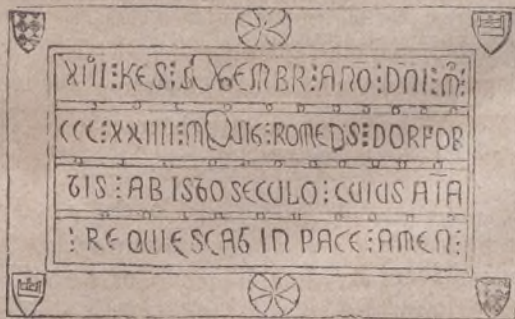 XIIII : KES : SETEMBR : ANO : DNI : M :
CCC : XXIIII : ROMEUS : DORFOB
TIS : AB ISTO SECULO : CUIUS AIA
: REQUIESCAT IN PACE : AMEN :